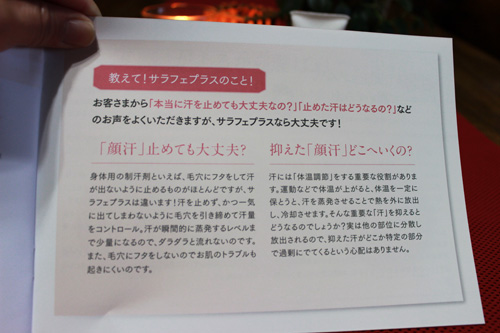 教えて!サラフェプラスのこと!
お客さまから「本当に汗を止めても大丈夫なの?」「止めた汗はどうなるの?」など
のお声をよくいただきますが、サラフェプラスなら大丈夫です!
「顔汗」止めても大丈夫?
身体用の制汗剤といえば、毛穴にフタをして汗
が出ないように止めるものがほとんどですが、サ
ラフェプラスは違います!汗を止めず、かつ一気
に出てしまわないように毛穴を引き締めて汗量
をコントロール。汗が瞬間的に蒸発するレベルま
で少量になるので、ダラダラと流れないのです。
また、毛穴にフタをしないのでお肌のトラブルも
起きにくいのです。
抑えた「顔汗」どこへいくの?
汗には「体温調節」をする重要な役割がありま
す。運動などで体温が上がると、体温を一定に
保とうと、汗を蒸発させることで熱を外に放出
し、冷却させます。そんな重要な「汗」を抑えると
どうなるのでしょうか?実は他の部位に分散し
放出されるので、抑えた汗がどこか特定の部分
で過剰にでてくるという心配はありません。